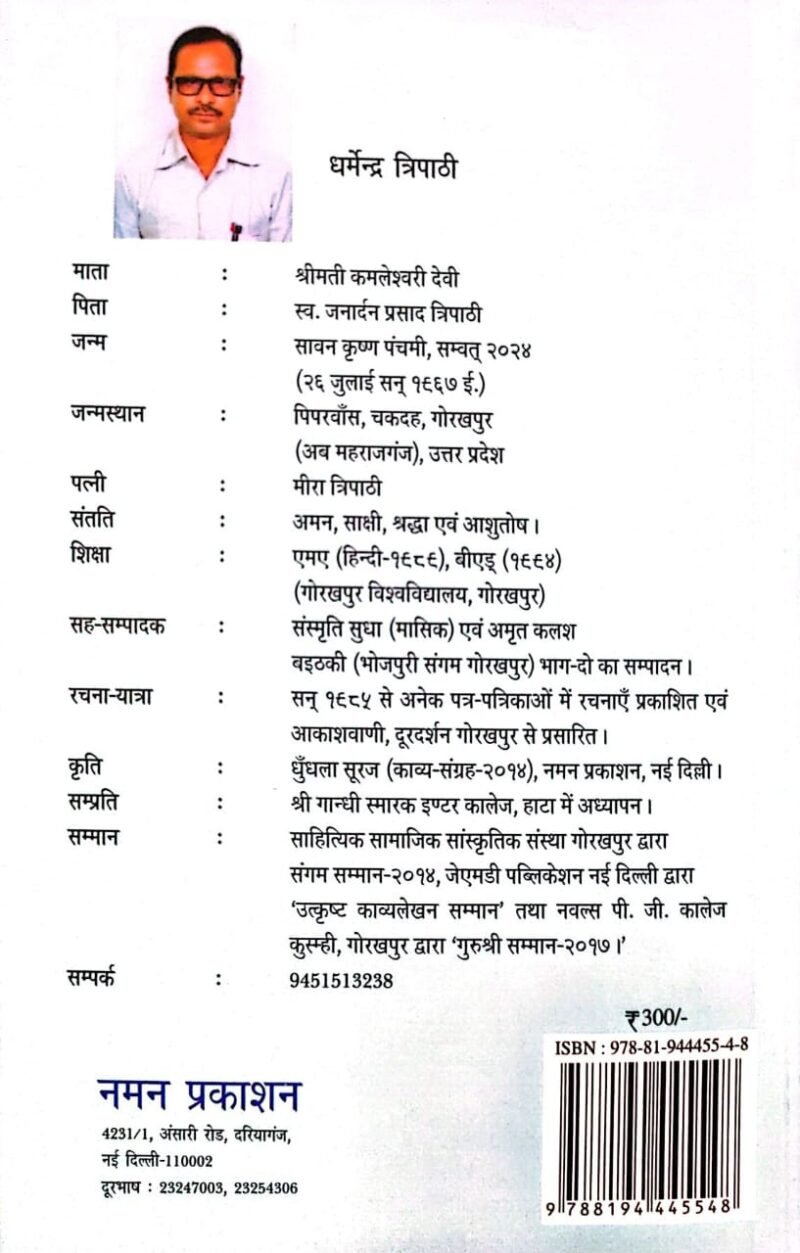 धर्मेन्द्र त्रिपाठी
माता : श्रीमती कमलेश्वरी देवी
पिता : स्व. जनार्दन प्रसाद त्रिपाठी
जन्म : सावन कृष्ण पंचमी, सम्वत् २०२४
(२६ जुलाई सन् १९६७ ई.)
जन्मस्थान : पिपरवाँस, चकदह, गोरखपुर
(अब महराजगंज), उत्तर प्रदेश
पत्नी : मीरा त्रिपाठी
संतति : अमन, साक्षी, श्रद्धा एवं आशुतोष।
शिक्षा : एमए (हिन्दी-१९८९), बीएड् (१९९४)
(गोरखपुर विश्वविद्यालय, गोरखपुर)
सह-सम्पादक : संस्मृति सुधा (मासिक) एवं अमृत कलश
बइठकी (भोजपुरी संगम गोरखपुर) भाग-दो का सम्पादन।
रचना-यात्रा : सन् १९८५ से अनेक पत्र-पत्रिकाओं में रचनाएँ प्रकाशित एवं
आकाशवाणी, दूरदर्शन गोरखपुर से प्रसारित।
कृति : धुँधला सूरज (काव्य-संग्रह-२०१४), नमन प्रकाशन, नई दिल्ली।
सम्प्रति : श्री गान्धी स्मारक इण्टर कालेज, हाटा में अध्यापन।
सम्मान : साहित्यिक सामाजिक सांस्कृतिक संस्था गोरखपुर द्वारा
संगम सम्मान-२०१४, जेएमडी पब्लिकेशन नई दिल्ली द्वारा
'उत्कृष्ट काव्यलेखन सम्मान' तथा नवल्स पी. जी. कालेज
कुसम्ही, गोरखपुर द्वारा 'गुरुश्री सम्मान-२०१७।'
सम्पर्क : 9451513238
₹300/-
ISBN : 978-81-944455-4-8
9 788194 445548
नमन प्रकाशन
4231/1, अंसारी रोड, दरियागंज,
नई दिल्ली-110002
दूरभाष : 23247003, 23254306